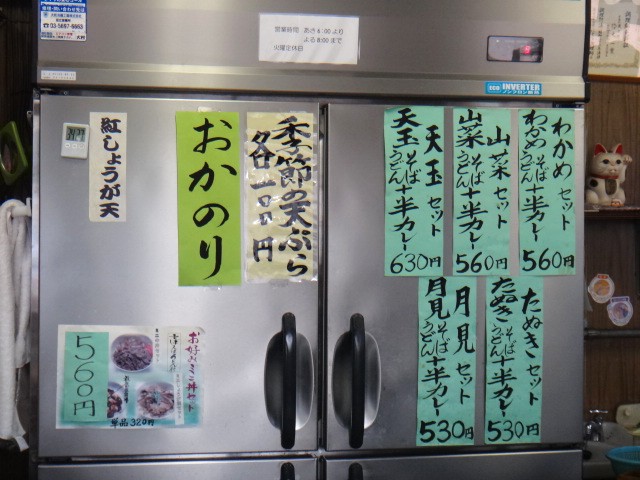 03-5697-6663
営業時間 あさ6:00より
よる8:00まで
火曜定休日
INVERTER
紅しょうが天
おかのり
季節の天ぷら
各一〇〇円
天玉セット
天玉そば
うどん+半カレー
630円
山菜セット
山菜そば
うどん+半カレー
560円
わかめセット
わかめそば
うどん+半カレー
560円
月見セット
月見そば
うどん+半カレー
530円
たぬきセット
たぬきそば
うどん+半カレー
530円
560円
単品320円